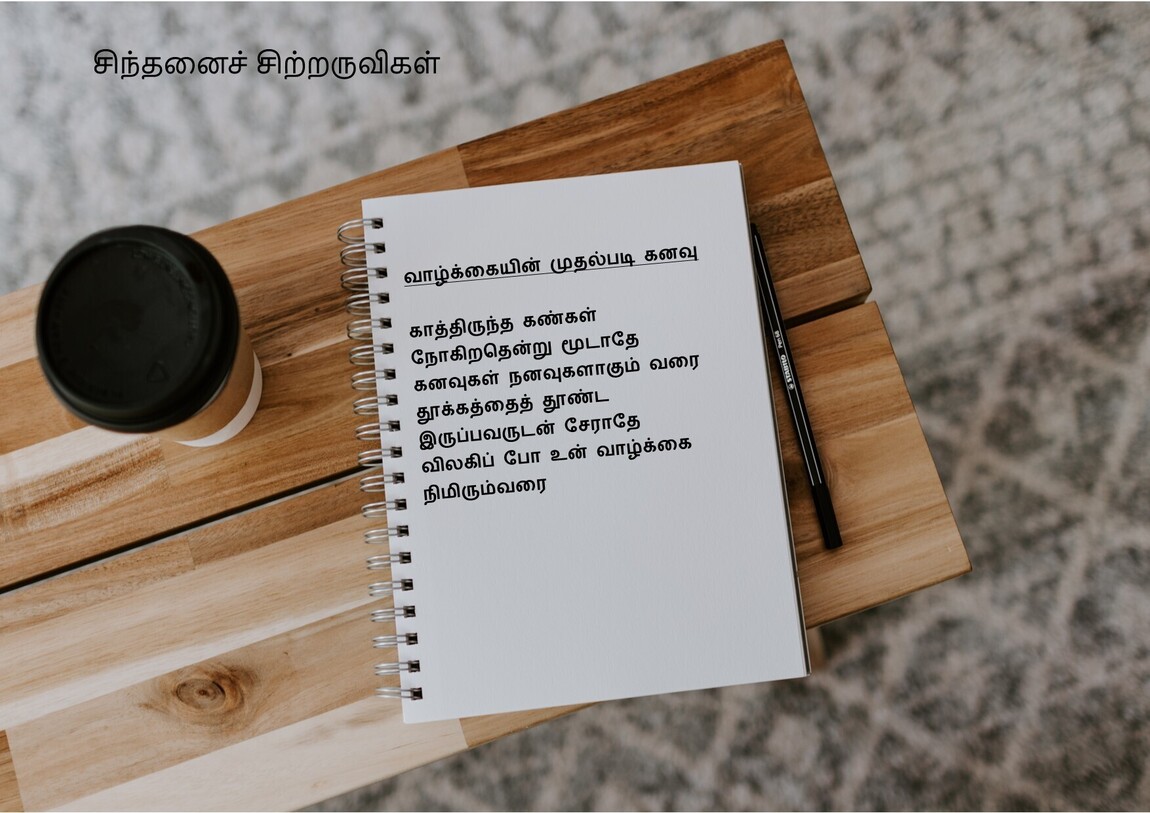 சிந்தனைச் சிற்றருவிகள்
வாழ்க்கையின் முதல்படி கனவு
காத்திருந்த கண்கள்
நோகிறதென்று மூடாதே
கனவுகள் நனவுகளாகும் வரை
தூக்கத்தைத் தூண்ட
இருப்பவருடன் சேராதே
விலகிப் போ உன் வாழ்க்கை
நிமிரும்வரை
STABILO